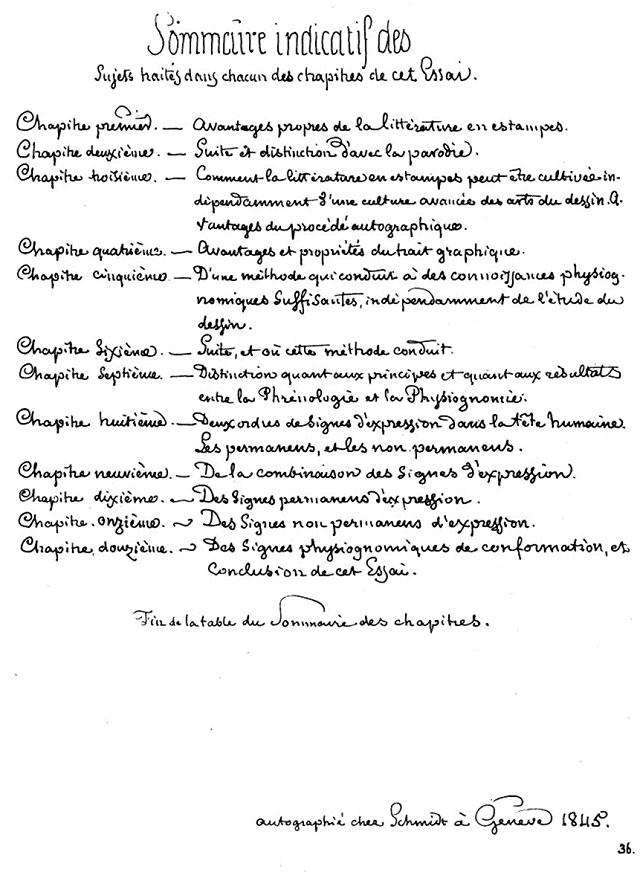 Sommaire indicatif des
Sujets traités dans chacun des chapitres de cet Essai.
Chapitre premier. — Avantages propres de la littérature en estampes.
Chapitre deuxième. — Suite et distinction d'avec la parodie.
Chapitre troisième. — Comment la littérature en estampes peut être cultivée in-
dépendamment d'une culture avancée des arts du dessin. A-
vantages du procédé autographique.
Chapitre quatrième. — Avantages et propriétés du trait graphique.
Chapitre cinquième — D'une méthode qui conduit à des connoissances physiog-
nomiques suffisantes, indépendamment de l'étude du
dessin.
Chapitre Sixième. — Suite, et où cette méthode conduit.
Chapitre Septième. — Distinction quant aux principes et quant aux résultats
entre la Phrénologie et la Physiognomie.
Chapitre huitième. — Deux ordres de Signes d'expression dans la tête humaine.
Les permanens, et les non permanens.
Chapitre neuvième. — De la combinaison des Signes d'expression.
Chapitre dixième. — Des Signes permanens d'expression.
Chapitre onzième. — Des Signes non permanens d'expression.
Chapitre douzième. — Des Signes physiognomiques de conformation, et
Conclusion de cet Essai.
Fin de la table du Sommaire des chapitres.
autographié chez Schmidt à Genève 1845.
36.